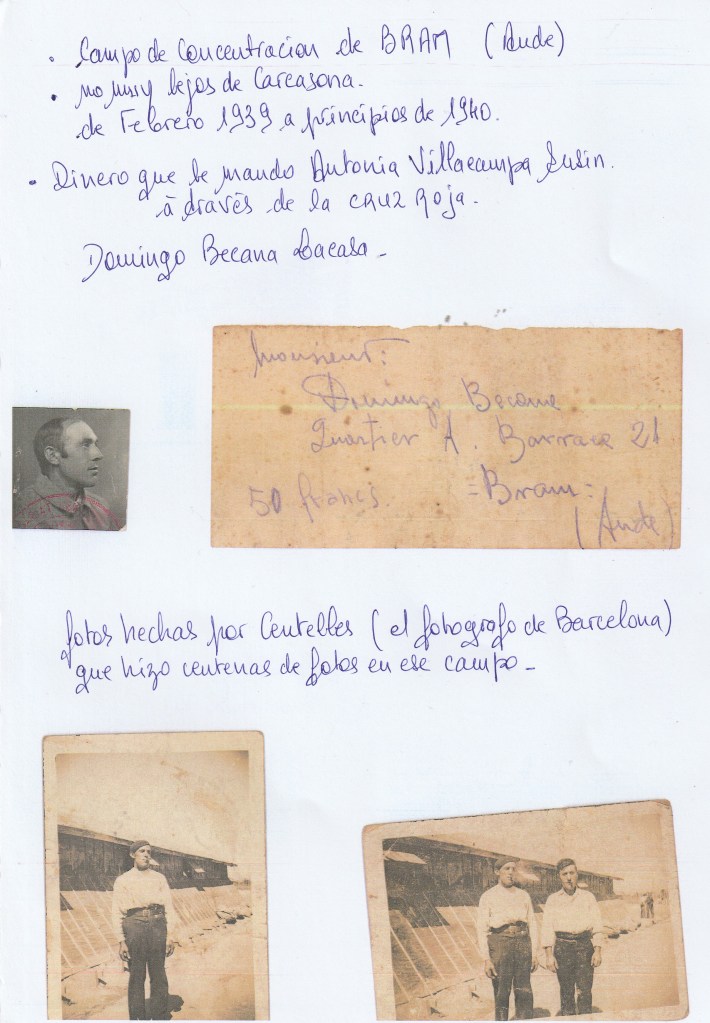 . Campo de Concentracion de BRAM (Aude)
. no muy lejos de Carcasona.
de Febrero 1939 a principios de 1940.
. Dinero que le mando Antonia Villacampa Susin.
à través de la CRUZ Roja.
Domingo Becana Lacasa -
Monsieur:
Domingo Becana
Quartier A. Barraca 21
50 francs. =Bram=
(Aude)
fotos hechas por Centelles (el fotografo de Barcelona)
que hizo centenas de fotos en ese campo -